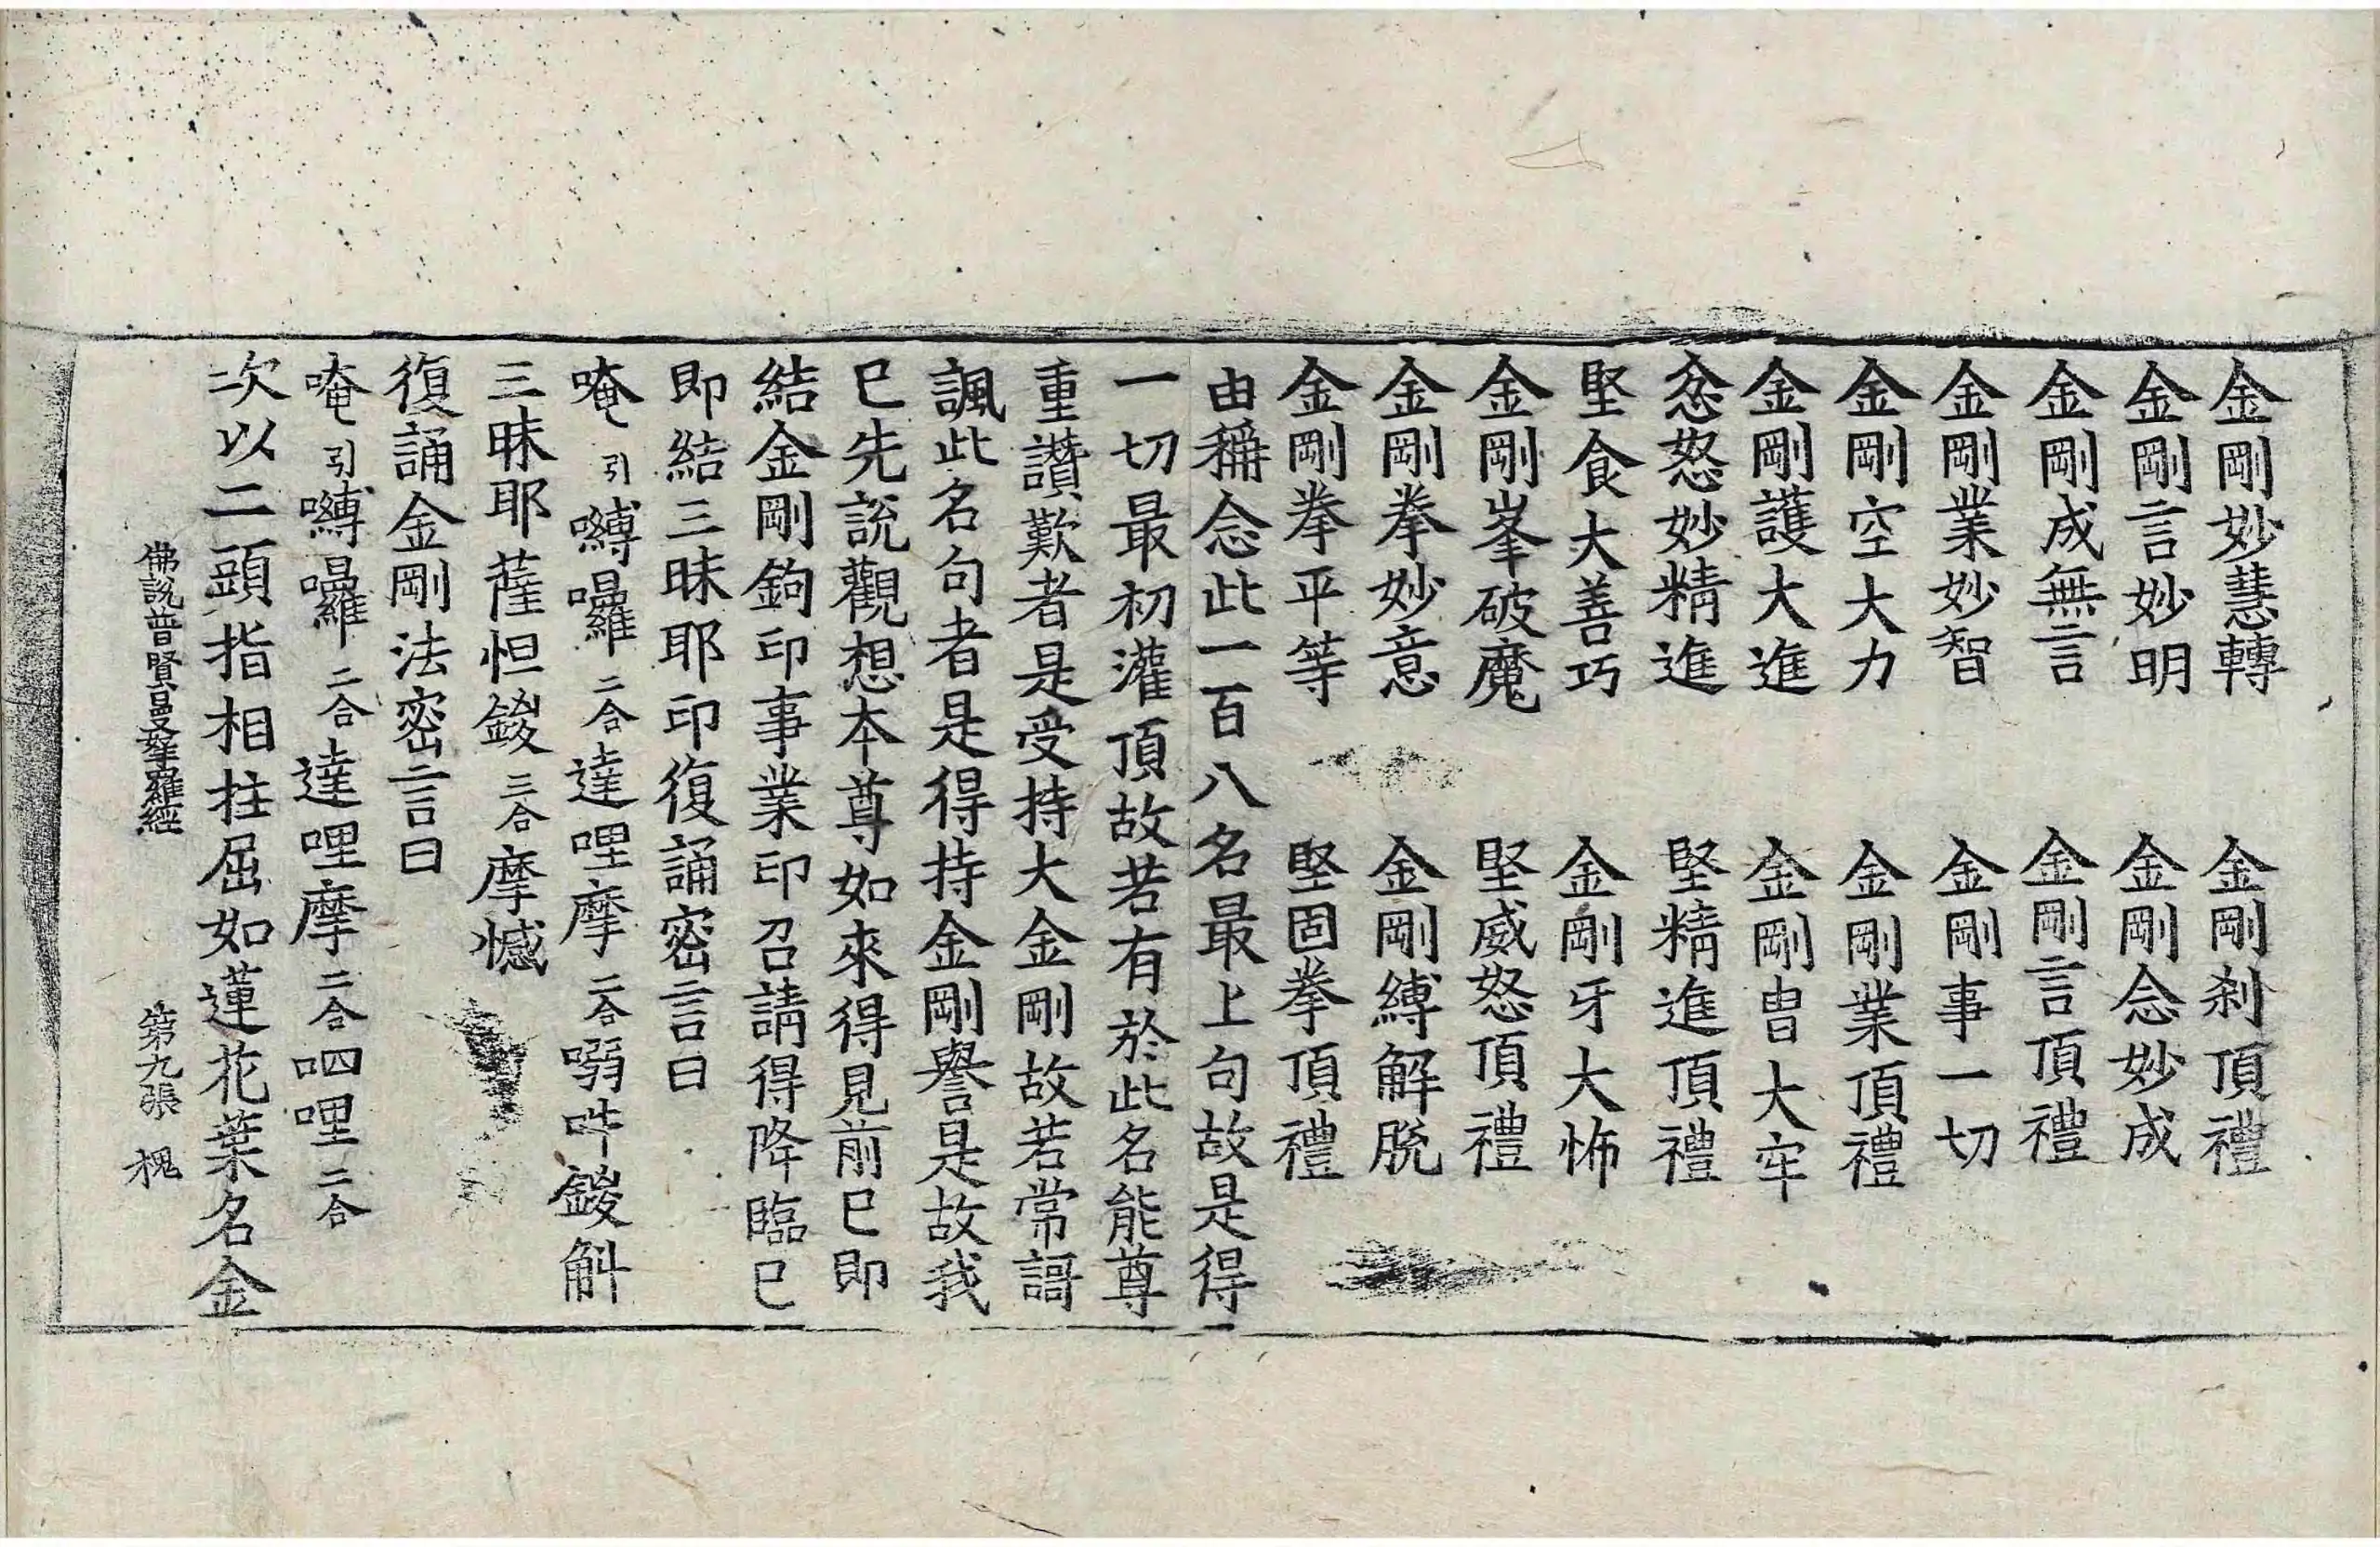 金剛妙慧轉　金剛剎頂禮
金剛言妙明　金剛念妙成
金剛成無言　金剛言頂禮
金剛業妙智　金剛事一切
金剛空大力　金剛業頂禮
金剛護大進　金剛冑大牢
忿怒妙精進　堅精進頂禮
堅食大善巧　金剛牙大怖
金剛峯破魔　堅威怒頂禮
金剛拳妙意　金剛縛解脫
金剛拳平等　堅固拳頂禮
由稱念此一百八名最上句故是得
一切最初灌頂故若有於此名能尊
重讚歎者是受持大金剛故若常謌
諷此名句者是得持金剛譽是故我
已先說觀想本尊如來得見前已即
結金剛鉤印事業印召請得降臨已
即結三昧耶印復誦密言曰
唵引嚩囉二合達哩摩二合嗍吽鍐斛
三昧耶薩怛鍐三合摩憾
復誦金剛法密言曰
唵引嚩囉二合達哩摩二合呬哩二合
次以二頭指相拄屈如蓮花葉名金
佛說普賢曼拏羅經　第九張　槐